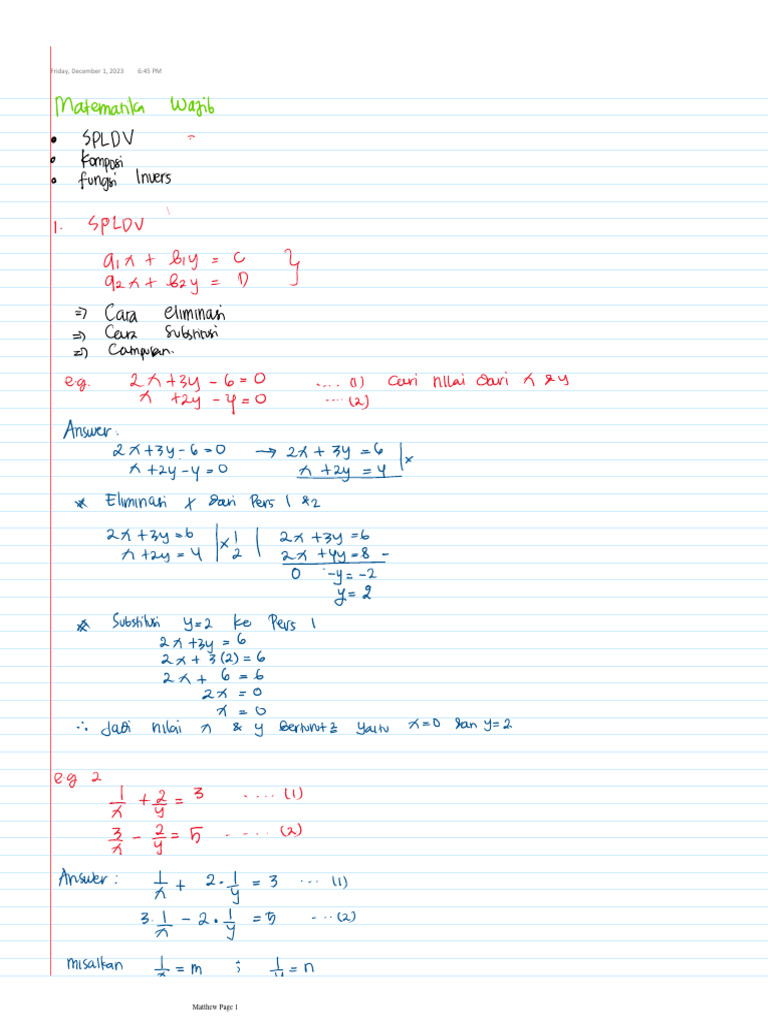 Friday, December 1, 2023 6:45 PM
Matematika Wajib
• SPLDV
• Komposi
• fungsi Invers
1. SPLDV
a₁x + b₁y = C }
a₂x + b₂y = D
=> Cara eliminasi
=> Cara Substitusi
=> Campuran.
e.g. 2x+3y-6=0 .... (1) Cari nilai dari x & y
x +2y -4=0 .... (2)
Answer:
2x+3y-6=0 → 2x + 3y = 6 | x
x+2y-4=0 x +2y = 4
* Eliminasi x dari Pers 1 & 2
2x+3y=6 | x 1 | 2x+3y=6
x+2y=4 | 2 | 2x +4y=8 -
0 -y=-2
y=2
* Substitusi y=2 ke Pers 1
2x+3y=6
2x+3(2)=6
2x+ 6=6
2x=0
x=0
∴ Jadi nilai x & y berturut2 yaitu x=0 dan y=2
e.g 2
1/x + 2/y = 3 .... (1)
3/x - 2/y = 5 ..... (2)
Answer: 1/x + 2·1/y = 3 ... (1)
3·1/x - 2·1/y = 5 ... (2)
misalkan 1/x = m ; 1/y = n
Matthew Page 1